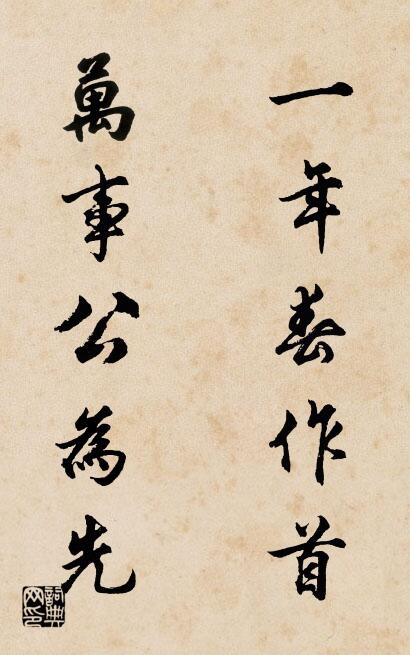 一年春作首
萬事公為先
詞典网印